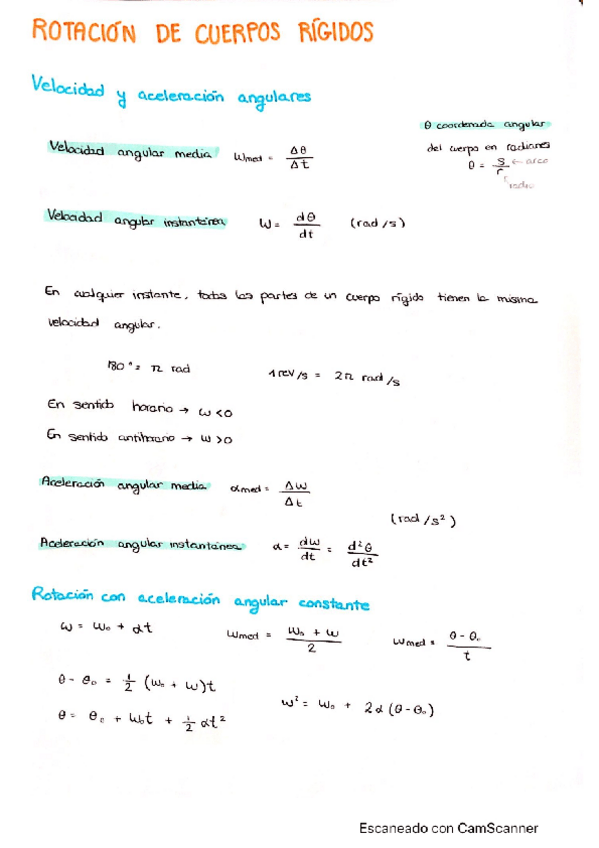 ROTACIÓN DE CUERPOS RÍGIDOS
Velocidad y aceleración angulares
θ coordenada angular
del cuerpo en radianes
θ = s/r ← arco
radio
Velocidad angular media ωmed = Δθ/Δt
Velocidad angular instantánea ω = dθ/dt (rad/s)
En cualquier instante, todas las partes de un cuerpo rígido tienen la misma
velocidad angular.
180° = π rad 1 rev/s = 2π rad/s
En sentido horario → ω<0
En sentido antihorario → ω>0
Aceleración angular media αmed = Δω/Δt
(rad/s²)
Aceleración angular instantánea α = dω/dt = d²θ/dt²
Rotación con aceleración angular constante
ω = ω₀ + αt ωmed = ω₀ + ω/2 ωmed = θ-θ₀/t
θ-θ₀ = 1/2 (ω₀ + ω)t
ω² = ω₀ + 2α(θ-θ₀)
θ = θ₀ + ω₀t + 1/2 αt²
Escaneado con CamScanner